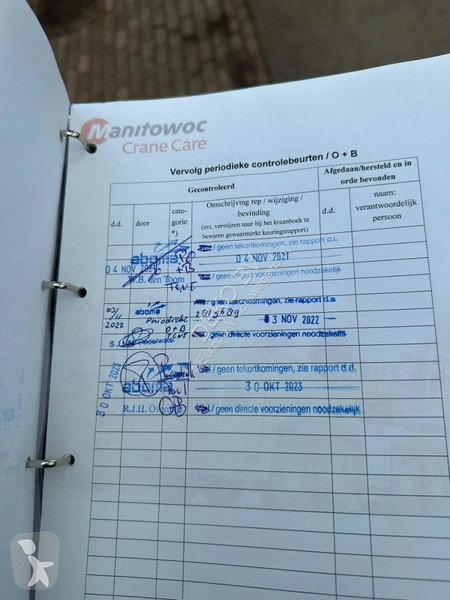 Manitowoc
Crane Care
Vervolg periodieke controlebeurten / O + B
Gecontroleerd
Afgedaan/hersteld en in orde bevonden
d.d.
door
cate-
gorie
*)
Omschrijving rep / wijziging /
bevinding
(evt. verwijzen naar bij het kraanboek te
bewaren gewaarmerkt keuringsrapport)
d.d.
naam:
verantwoordelijk
persoon
aboma
/ geen tekortkomingen, zie rapport d.d.
04 NOV 2021
04 NOV 2021
B. den Toom
/ geen directe voorzieningen noodzakelijk
03/
11
2022
aboma
Periodieke
O+B
/ geen tekortkomingen, zie rapport d.d.
3 NOV 2022
/ geen directe voorzieningen noodzakelijk
30 OKT 2023
aboma
/ geen tekortkomingen, zie rapport d.d.
30 OKT 2023
R.J.H.
/ geen directe voorzieningen noodzakelijk